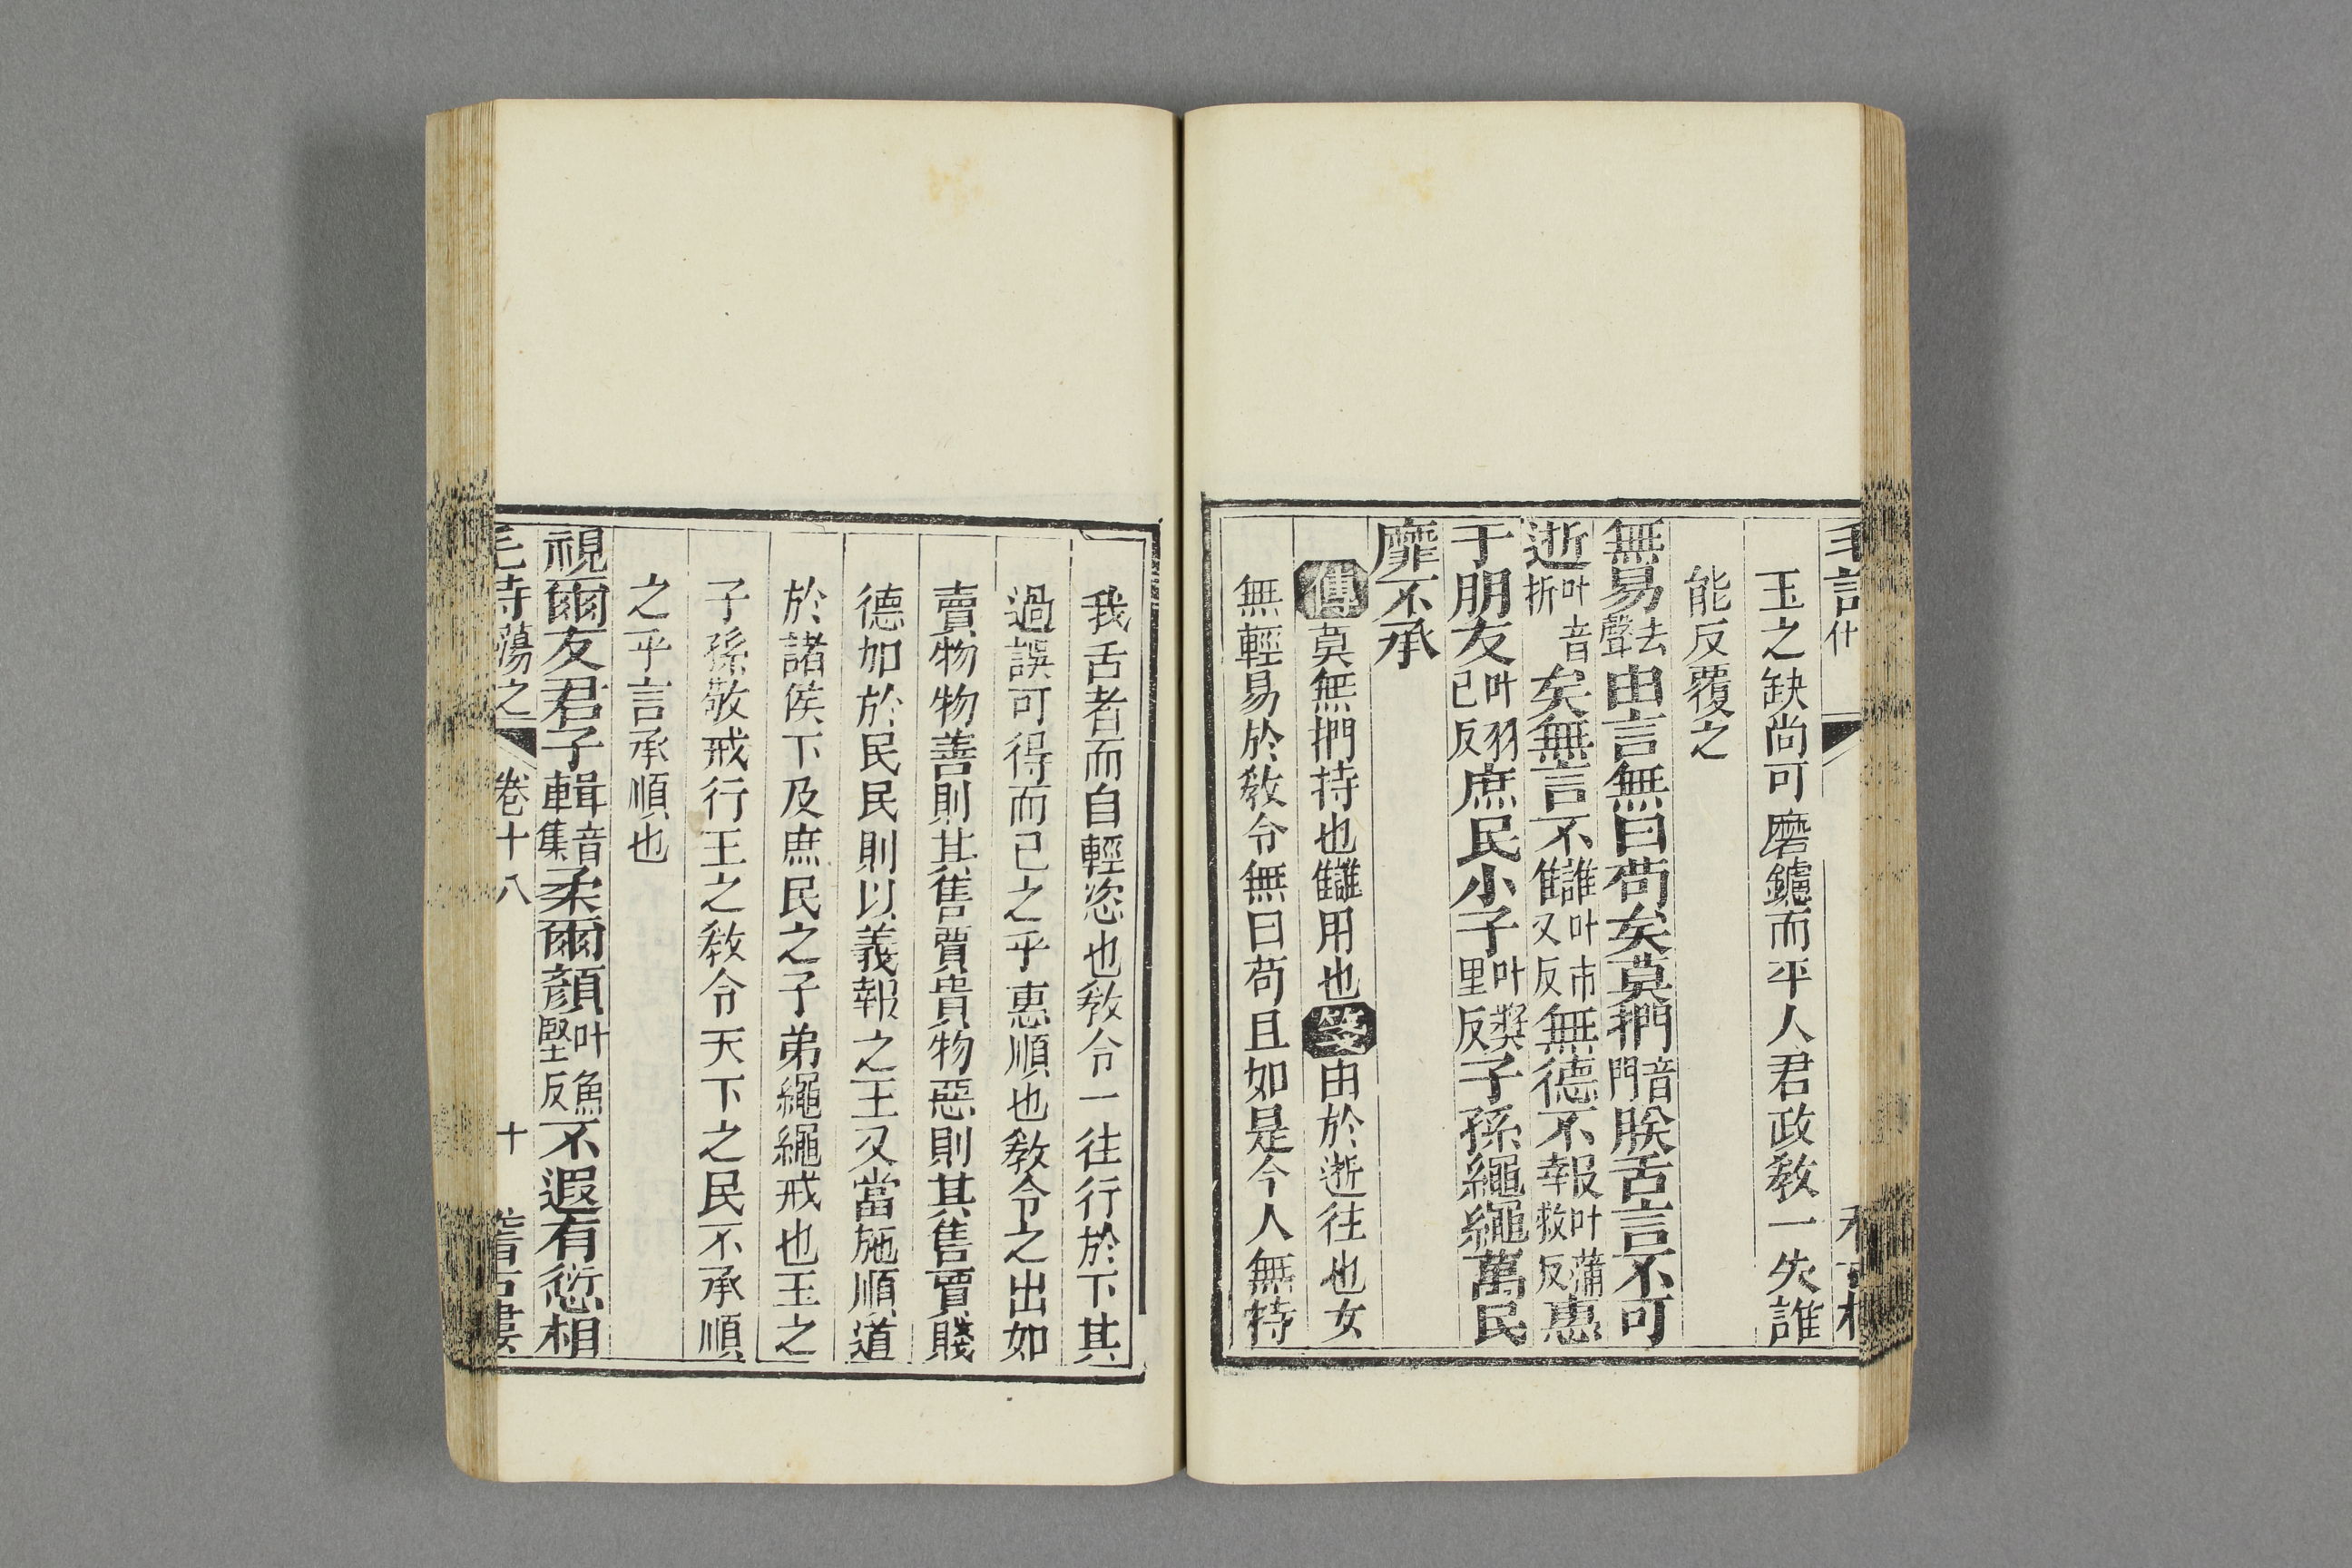 玉之缺尚可磨鑢而平人君政教一失誰
能反覆之
無易去聲由言無曰苟矣莫捫音門朕舌言不可
逝叶音折矣無言不讎叶市又反無德不報叶蒲救反惠
于朋友叶羽已反庶民小子叶奬里反子孫繩繩萬民
靡不承
傳莫無捫持也讎用也箋由於逝往也女
無輕易於教令無曰苟且如是今人無持
我舌者而自輕恣也教令一往行於下其
過誤可得而已之乎惠順也教令之出如
賣物物善則其售賈貴物惡則其售賈賤
德加於民民則以義報之王又當施順道
於諸侯下及庶民之子弟繩繩戒也王之
子孫敬戒行王之教令天下之民不承順
之乎言承順也
視爾友君子輯音集柔爾顏叶魚堅反不遐有愆相
毛詩蕩之 卷十八 十